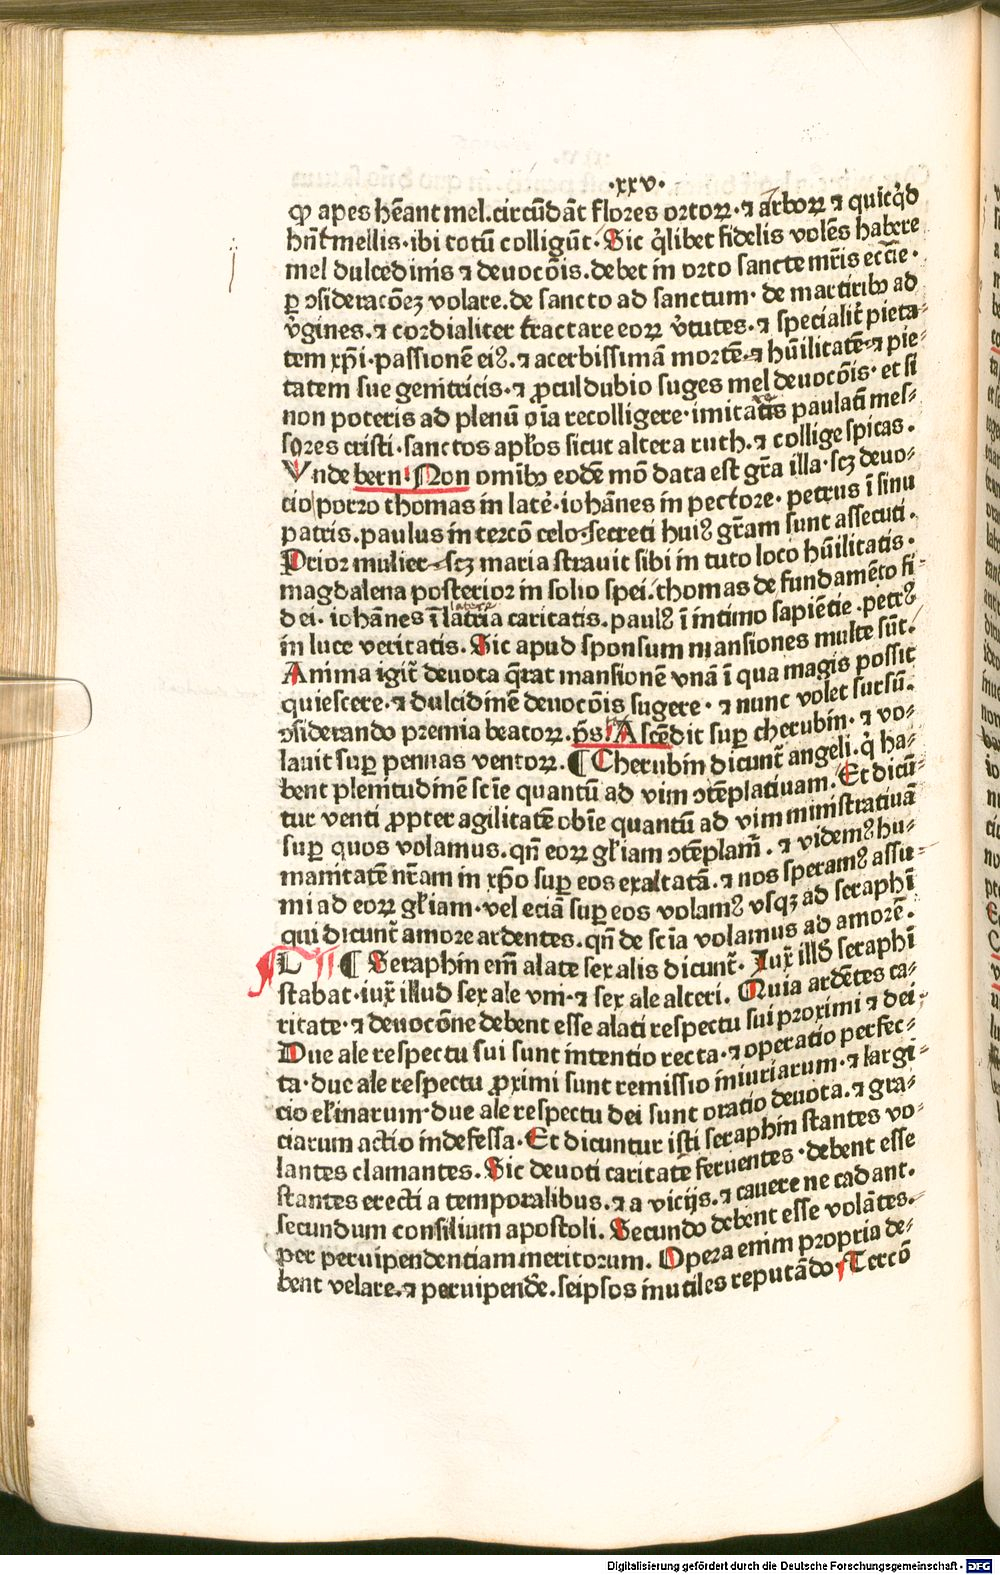 ·xxv·
ꝙ apes hēant mel. circūdāt flores ortoꝝ · ⁊ arboꝝ ⁊ quicq̇d
hñt mellis · ibi totū colligūt · Sic q̇libet fidelis volēs habere
mel dulcedinis ⁊ deuocōis. debet in orto sancte mr̄is ecc̄ie ·
ꝑ ꝯsideracōeꝫ volare. de sancto ad sanctum · de martiribꝰ ad
v̇gines. ⁊ cordialiter tractare eoꝝ v̇tutes · ⁊ specialit̄ pieta⸗
tem xp̄i · passionē eiꝰ. ⁊ acerbissimā mortē · ⁊ hūilitatē · ⁊ pie⸗
tatem sue genitricis · ⁊ ꝓculdubio suges mel deuocōis · et si
non poteris ad plenū oīa recolligere · imitatis paulatī mes⸗
sores cristi · sanctos apl̄os sicut altera ruth. ⁊ collige spicas.
Vnde bern! Non omībꝰ eodē mō data est gr̄a illa · scꝫ deuo⸗
cio porro thomas in late̾. iohānes in pectore · petrus ī sinu
patris. paulus in tercō celo · secreti huiꝰ gr̄am sunt assecuti.
Prior mulier · scꝫ maria strauit sibi in tuto loco hūilitatis ·
magdalena posterior in solio spei. thomas de fundamēto fi⸗
dei · iohānes ī latria caritatis. paulꝰ ī intimo sapiētie · petrꝰ
latere
in luce veritatis. Sic apud sponsum mansiones multe sūt.
Anima igit̄ deuota q̄rat mansionē vnā ī qua magis possit
quiescere · ⁊ dulcidinē deuocōis sugere · ⁊ nunc volet sursū.
ꝯsiderando premia beatoꝝ. p̄s. Ascēdit suꝑ cherubin · ⁊ vo⸗
lauit suꝑ pennas ventoꝝ. ¶ Cherubin dicunt̄ angeli. q̇ ha⸗
bent plenitudinē scīe quantū ad vim ꝯtēplatiuam. Et dicū⸗
tur venti ꝓpter agilitatē obīe quantū ad vim ministratiuā
suꝑ quos volamus. qn̄ eoꝝ gl̄iam ꝯtēplam̄. ⁊ videmꝰ hu⸗
manitatē nr̄am in xp̄o suꝑ eos exaltatā. ⁊ nos speramꝰ assu⸗
mi ad eoꝝ gl̄iam · vel eciā suꝑ eos volamꝰ vsqꝫ ad seraphī
qui dicunt̄ amore ardentes. qn̄ de scīa volamus ad amorē.
L ¶ Seraphin em̄ alate sex alis dicunt̄. Iux̄ illd̄ seraphī
stabat · iux̄ illud sex ale vni · ⁊ sex ale alteri. Quia ardētes ca⸗
ritate · ⁊ deuocōne debent esse alati respectu sui proximi ⁊ dei
Due ale respectu sui sunt intentio recta · ⁊ operatio perfec⸗
ta · due ale respectu ꝓximi sunt remissio iniuriarum · ⁊ largi⸗
cio el̄inarum · due ale respectu dei sunt oratio deuota. ⁊ gra⸗
ciarum actio indefessa · Et dicuntur isti seraphin stantes vo⸗
lantes clamantes. Sic deuoti caritate feruentes · debent esse
stantes erecti a temporalibus. ⁊ a vicijs. ⁊ cauere ne cadant.
secundum consilium apostoli. Secundo debent esse volātes.
per peruipendentiam meritorum. Opera enim propria de⸗
bent velare. ⁊ peruipendē̄. seipsos inutiles reputādo · Tercō
Digitalisierung gefördert durch die Deutsche Forschungsgemeinschaft - DFG